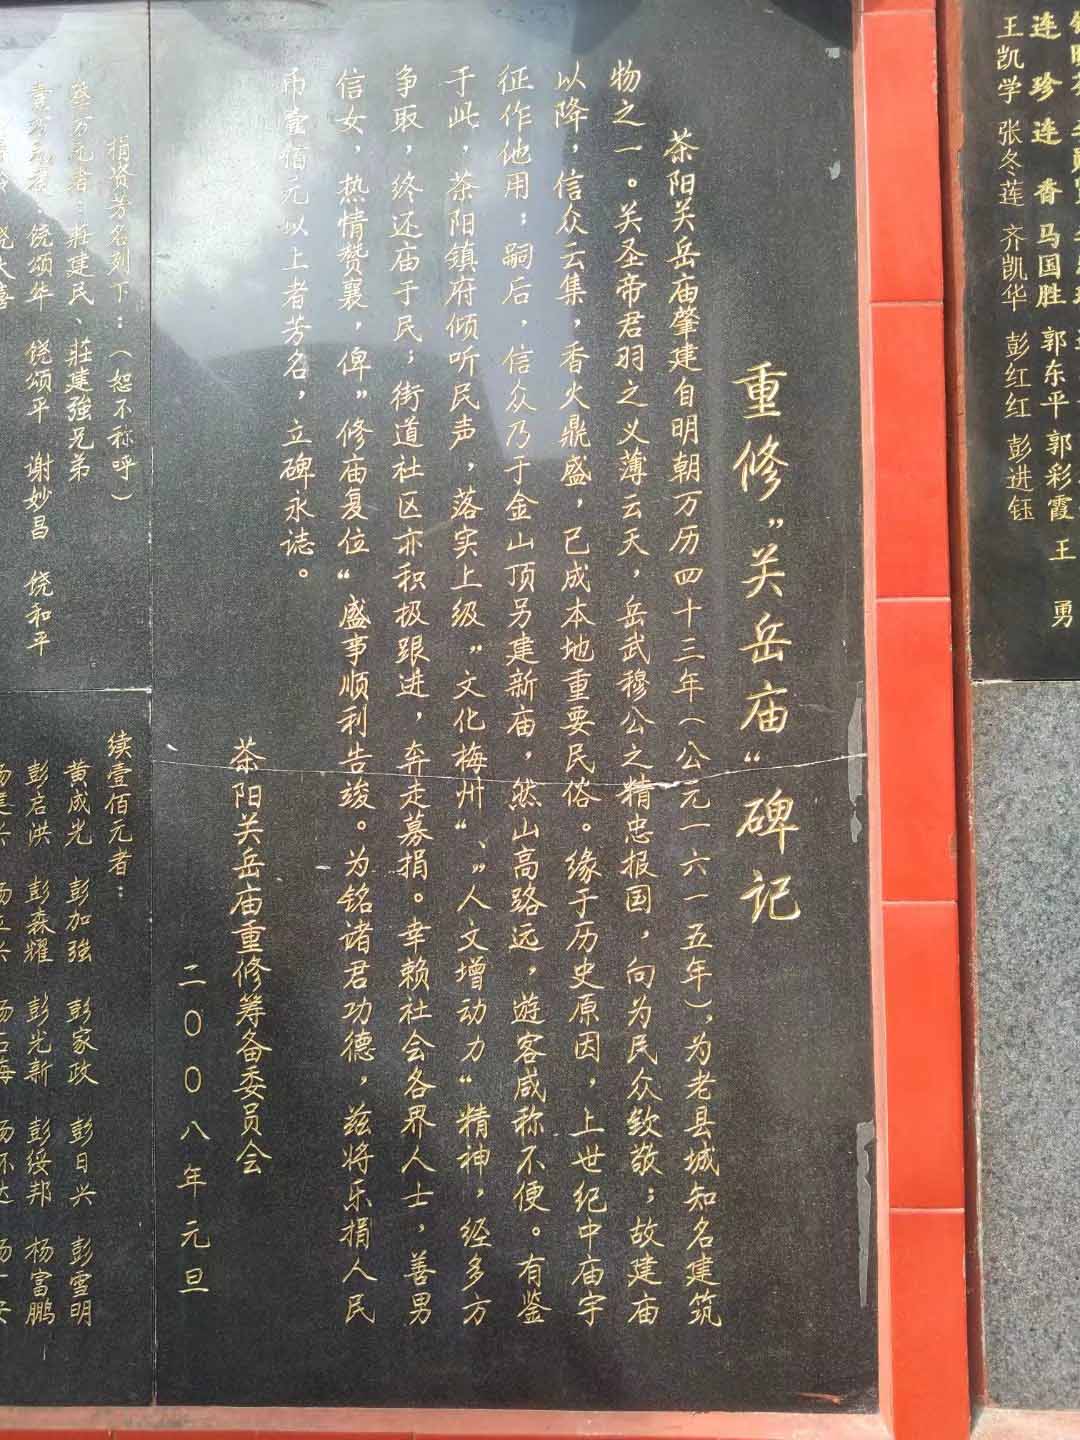 连珍连香马国胜郭东平郭彩霞王勇
王凯学 张冬莲 齐凯华 彭红红 彭进钰
重修"关岳庙"碑记
茶阳关岳庙肇建自明朝万历四十三年(公元一六一五年)、为老县城知名建筑
物之一。关圣帝君羽之义薄云天,岳武穆公之精忠报国,向为民众钦敬;故建庙
以降,信众云集,香火鼎盛,已成本地重要民俗。缘于历史原因,上世纪中庙宇
征作他用;嗣后,信众乃于金山顶另建新庙,然山高路远,遊客咸称不便。有鉴
于此,茶阳镇府倾听民声,落实上级"文化梅州"、"人文增动力"精神,经多方
争取,终还庙于民;街道社区亦积极跟进,奔走募捐。幸赖社会各界人士,善男
信女,热情赞襄,俾"修庙复位"盛事顺利告竣。为铭诸君功德,兹将乐捐人民
币壹佰元以上者芳名,立碑永志。
茶阳关岳庙重修筹备委员会
二〇〇八年元旦
捐资芳名列下:(恕不称呼)
壹万元者:莊建民、莊建強兄弟
饶颂华 饶颂平 谢妙昌 饶和平
续壹佰元者:
黄成光 彭加強 彭家政 彭日兴 彭雪明
彭启洪 彭森耀 彭光新 彭绥邦 杨富鹏